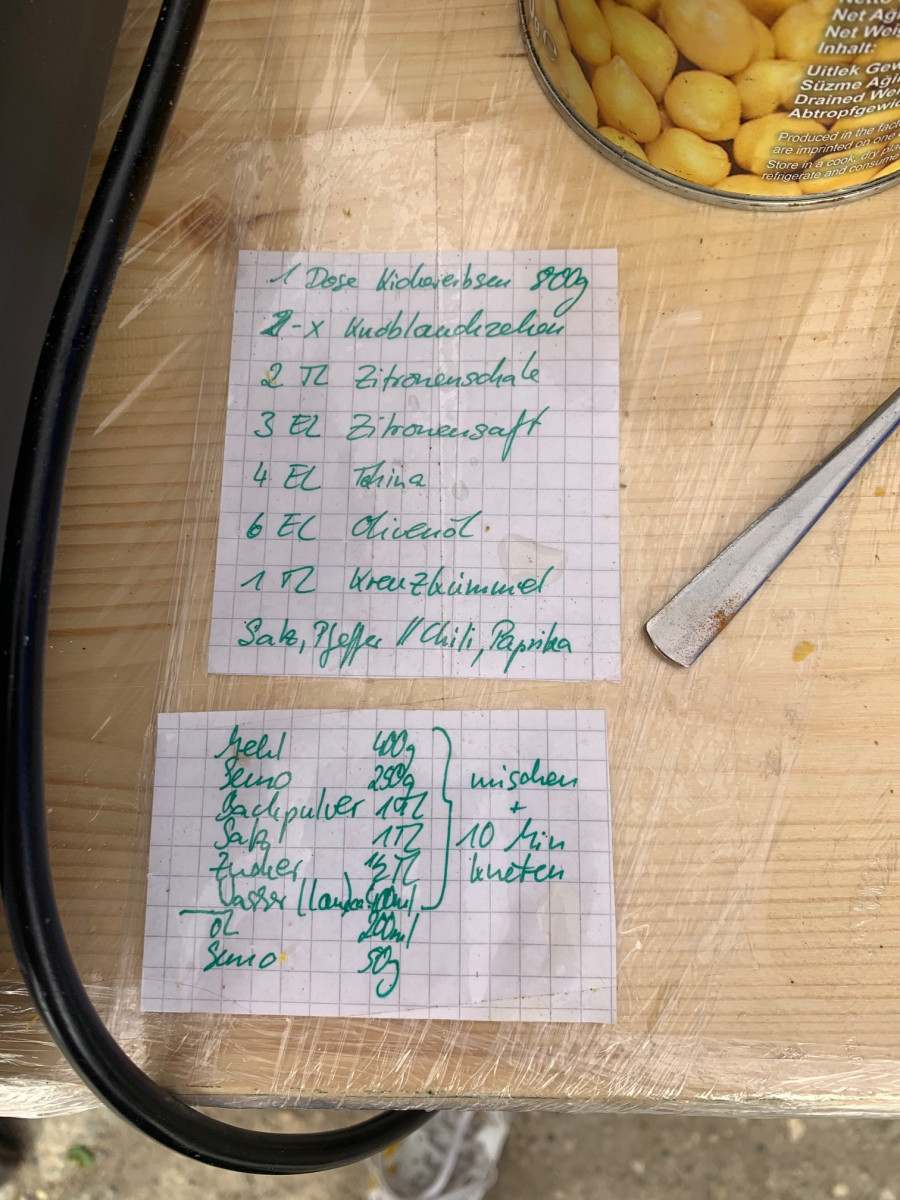 Netto
Net Ağı
Net Wei
Inhalt:
Uitlek Gew
Süzme Ağı
Drained We
Abtropfgewic
Produced in the fact
are imprinted on one
Store in a cook, dry pla
refrigerate and consume
1 Dose Kichererbsen 800g
2-x Knoblauchzehen
2 TL Zitronenschale
3 EL Zitronensaft
4 EL Tahina
6 EL Olivenöl
1 TL Kreuzkümmel
Salz, Pfeffer // Chili, Paprika
Mehl 400g
Semo 250g
Backpulver 1 TL
Salz 1 TL
Zucker 1/2 TL
Wasser 400ml
Öl 200ml
Semo 50g
mischen
+
10 Min
kneten